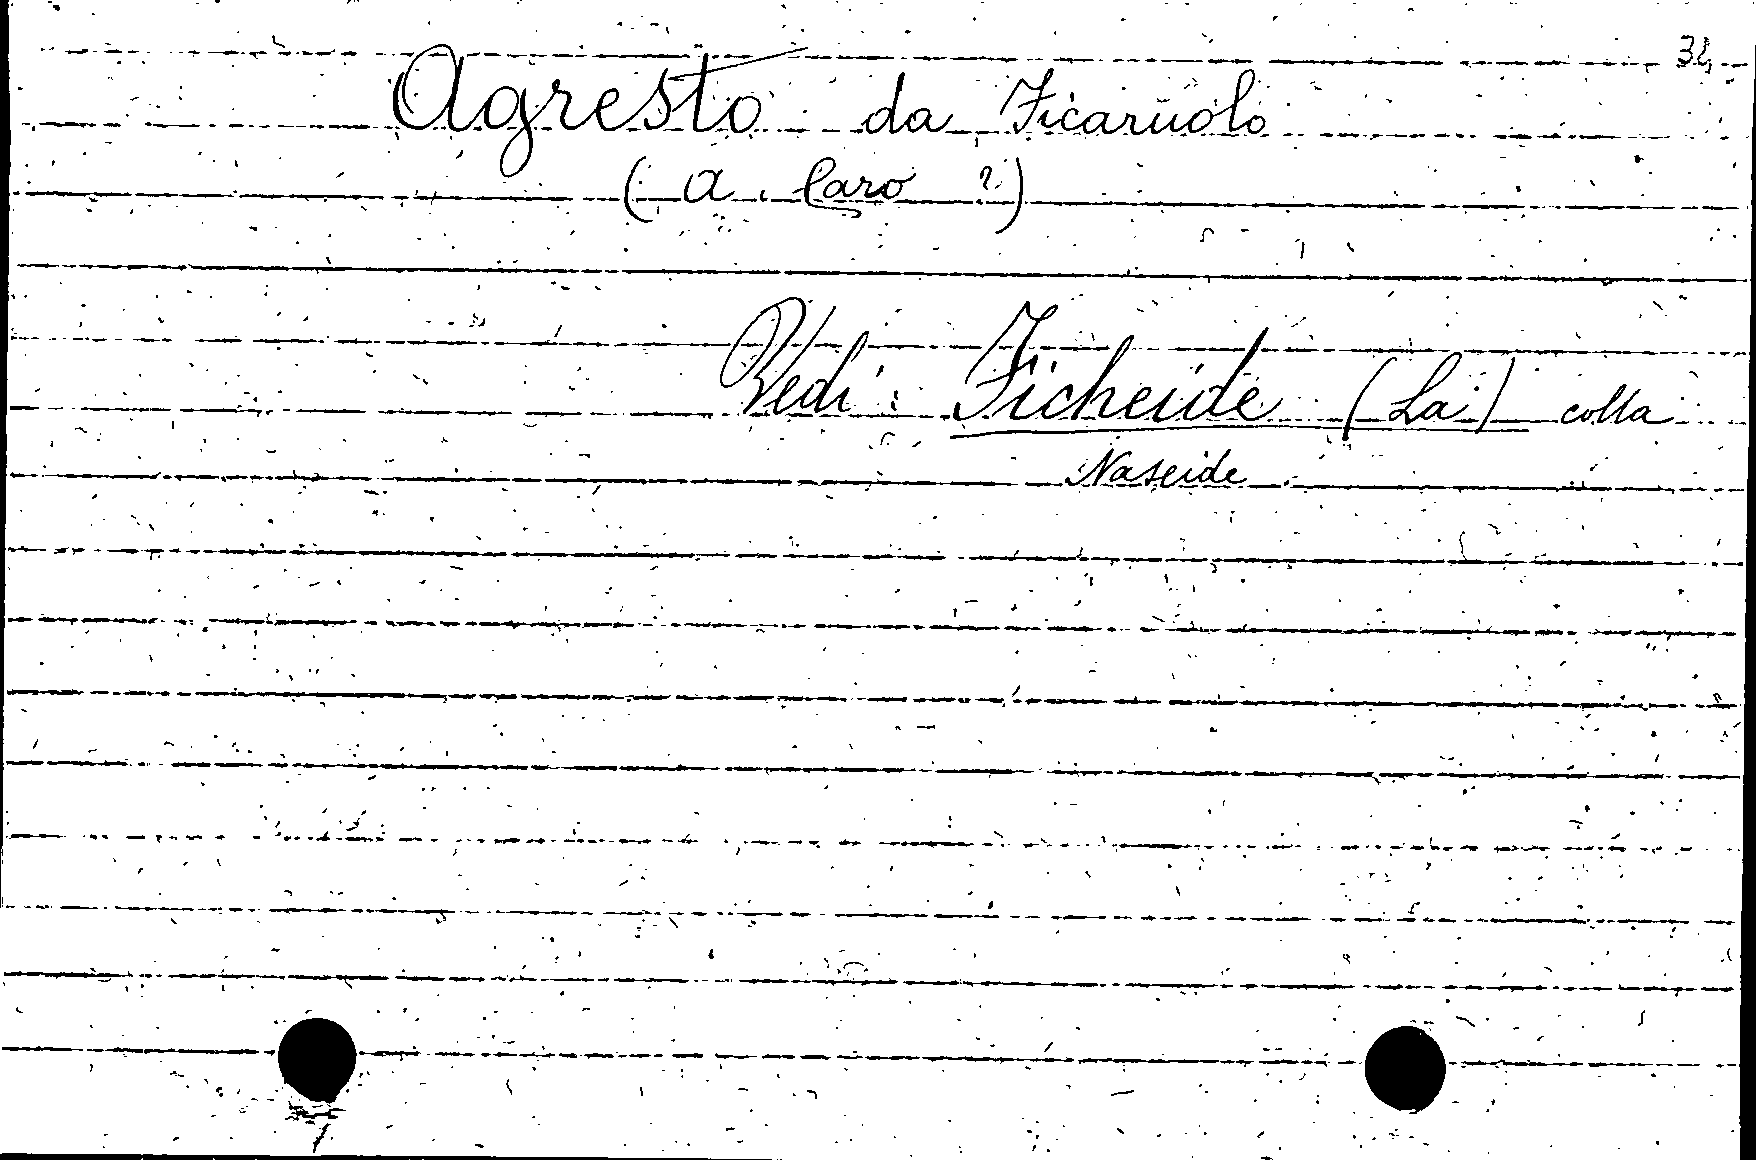 34
Agresto da Ficaruolo
(A. Caro ?)
Vedi: Ficheide (La) colla
Naseide.